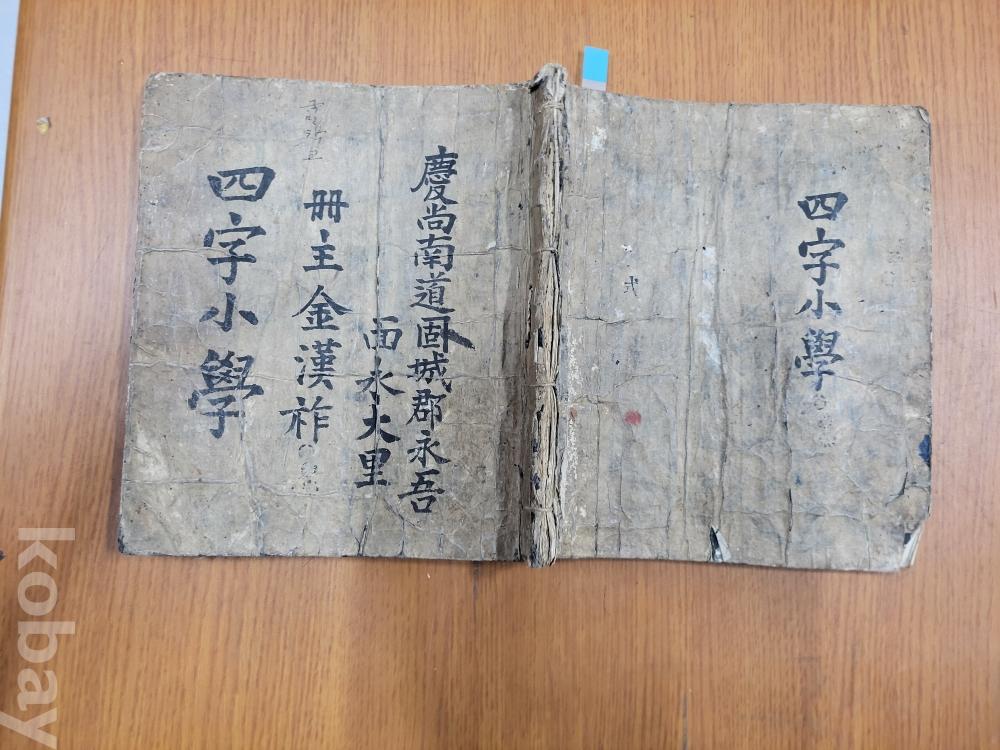 四字小學
慶尚南道固城郡永吾
面永大里
冊主金漢祚
四字小學
kobay